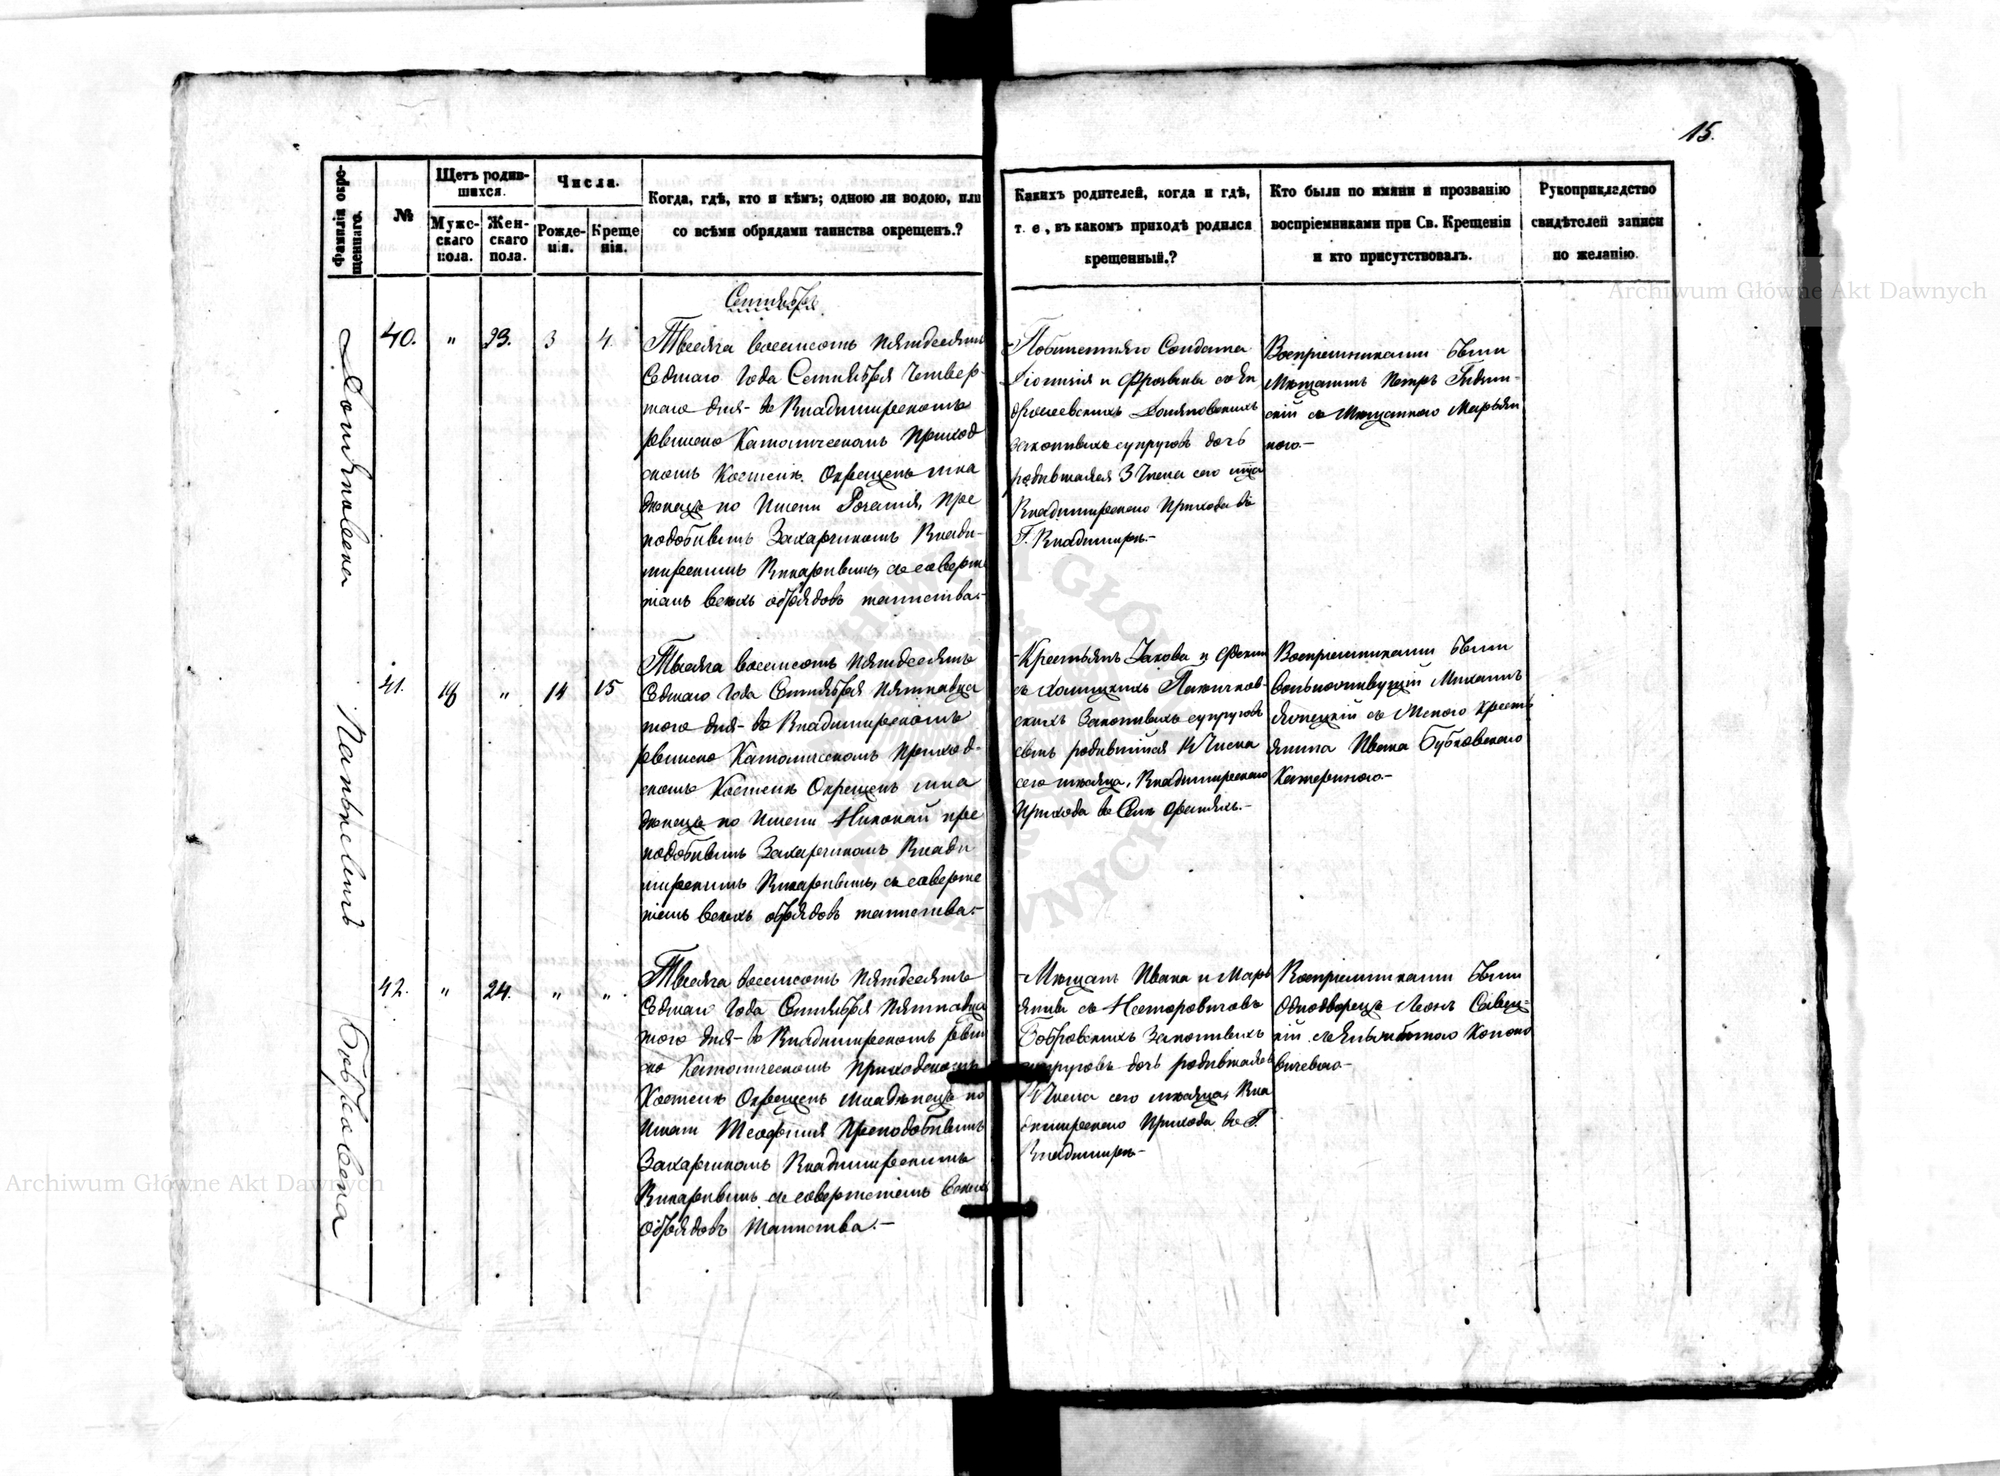 15.
Фамилія окрещеннаго.
№
Щетъ родившихся.
Мужскаго пола.
Женскаго пола.
Числа.
Рожденія.
Крещенія.
Когда, гдѣ, кто и кѣмъ; одною ли водою, или
со всѣми обрядами таинства окрещенъ.?
Какихъ родителей, когда и гдѣ,
т. е., въ какомъ приходѣ родился
крещенный.?
Кто были по имяни и прозванію
воспріемниками при Св. Крещеніи
и кто присутствовалъ.
Рукоприкладство
свидѣтелей записи
по желанію.
Сентябрь
40. " 23. 3 4.
Тысяча восемсотъ пятдесятъ
Седмаго Года Сентября Четвер-
таго дня- въ Владимирскомъ
римско Католическомъ приход
скомъ Костелѣ Окрещенъ мла
денецъ по Имени, пре
подобнымъ Захаричомъ Влади-
мирскимъ Викарнымъ, съ соверше
ніемъ всехъ обрядовъ таинства.-
Солдата
и
законныхъ супруговъ дочь
родившаяся 3 Числа сего м-ца
Владимирскаго Прихода въ
Г. Владимирѣ.-
Воспріемниками были
Мѣщанинъ Петръ
скій съ Мѣщанкою Марьян
ною.-
41. 18 " 14 15
Тысяча восемсотъ пятдесятъ
Седмаго Года Сентября пятнадца
таго дня- въ Владимирскомъ
римско Католическомъ приход-
скомъ Костелѣ Окрещенъ мла
денецъ по Имени Николай пре
подобнымъ Захаричомъ Влади
мирскимъ Викарнымъ, съ соверше
ніемъ всехъ обрядовъ таинства.-
Крестьянъ Іакова и
съ
скихъ Законныхъ супруговъ
сынъ родившійся 14 Числа
сего мѣсяца, Владимирскаго
Прихода въ Селѣ
Воспріемниками были
Михаилъ
съ Женою Крестья
нина Ивана Бубновскаго
Катериною.-
42. " 24. " "
Тысяча восемсотъ пятдесятъ
Седмаго Года Сентября пятнадца
таго дня- въ Владимирскомъ рим
ско Католическомъ приходскомъ
Костелѣ Окрещенъ младенецъ по
Имени Теофилія Преподобнымъ
Захаричомъ Владимирскимъ
Викарнымъ съ совершеніемъ всехъ
обрядовъ таинства.-
Мѣщанъ Ивана и Марь
янны съ Несторовичовъ
Бобровскихъ Законныхъ
супруговъ дочь родившаяся
14 Числа сего мѣсяца, Вла
димирскаго Прихода въ Г.
Владимирѣ-
Воспріемниками были
Однодворецъ Леонъ
съ Кононо
вичевою-
Бобровская
Archiwum Główne Akt Dawnych
Archiwum Główne Akt Dawnych